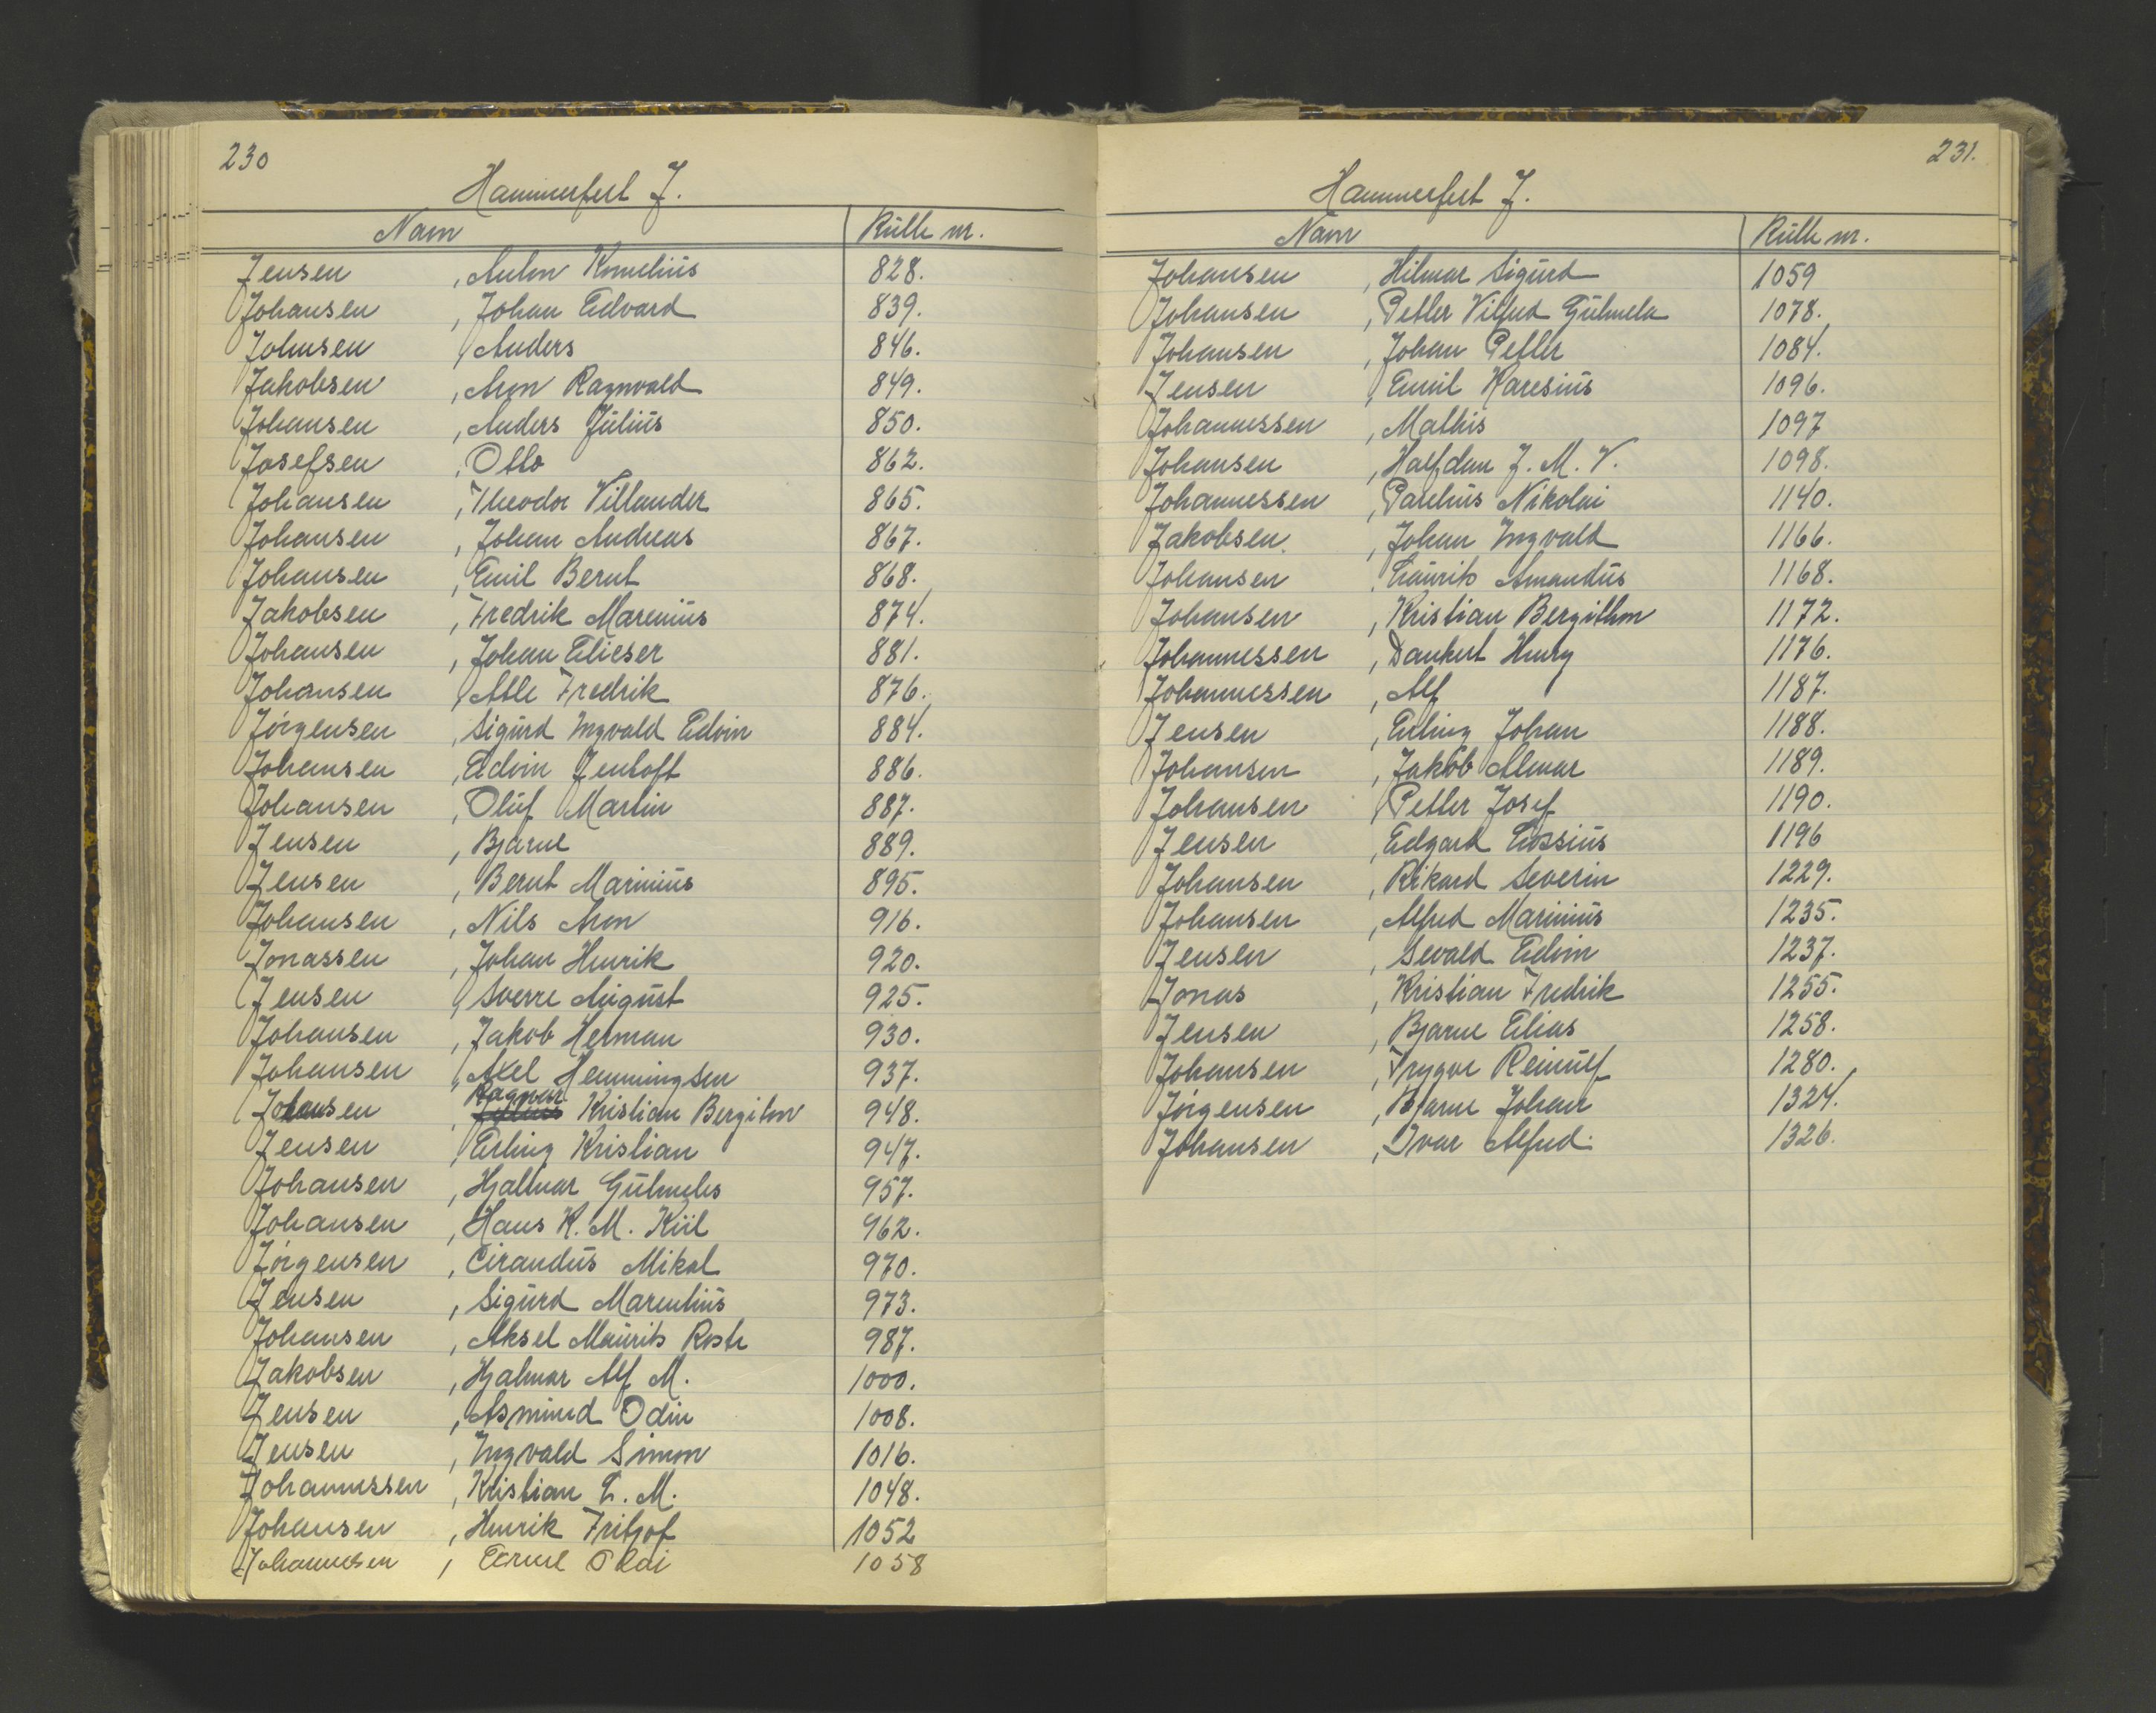 230
Hammerfest J.
Navn | Rulle nr.
Jensen, Anton Kornelius 828.
Johansen, Johan Edvard 839.
Johnsen, Anders 846.
Jakobsen, Aron Ragnvald 849.
Johansen, Anders Julius 850.
Josefsen, Otto 862.
Johansen, Theodor Villander 865.
Johansen, Johan Andreas 867.
Johansen, Emil Bernt 868.
Jakobsen, Fredrik Marenius 874.
Johansen, Johan Elieser 881.
Johansen, Atle Fredrik 876.
Jørgensen, Sigurd Ingvald Edvin 884.
Johansen, Edvin Jentoft 886.
Johansen, Oluf Martin 887.
Jensen, Bjarne 889.
Jensen, Bernt Marinius 895.
Johansen, Nils Aron 916.
Jonassen, Johan Henrik 920.
Jensen, Sverre August 925.
Johansen, Jakob Herman 930.
Johansen, Axel Hemmingsen 937.
Johansen, Ragnvar Kristian Bergiton 948.
Jensen, Erling Kristian 947.
Johansen, Hjalmar 957.
Johansen, Hans K. M. Kiil 962.
Jørgensen, Cirandus Mikal 970.
Jensen, Sigurd Marentius 973.
Johansen, Aksel Maurits 987.
Jakobsen, Hjalmar Alf M. 1000.
Jensen, Asmund Odin 1008.
Jensen, Ingvald Simon 1016.
Johannessen, Kristian E. M. 1048.
Johansen, Henrik Fritjof 1052
Johannesen, 1058
231.
Hammerfest J.
Navn | Rulle nr.
Johansen, Hilmar Sigurd 1059
Johansen, Petter Vilfred 1078.
Johansen, Johan Petter 1084.
Jensen, Emil Karesius 1096.
Johannessen, Mathis 1097
Johansen, Halfdan J. M. V. 1098.
Johannessen, Parelius Nikolai 1140.
Jakobsen, Johan Ingvald 1166.
Johansen, Laurits Amandus 1168.
Johansen, Kristian Bergithon 1172.
Johannessen, Dankert Henry 1176.
Johannessen, Alf 1187.
Jensen, Erling Johan 1188.
Johansen, Jakob Almar 1189.
Johansen, Petter Josef 1190.
Jensen, Edgard 1196
Johansen, Rikard Severin 1229.
Johansen, Alfred Marinius 1235.
Jensen, Sevald Edvin 1237.
Jonas, Kristian Fredrik 1255.
Jensen, Bjarne Elias 1258.
Johansen, Trygve Reinulf 1280.
Jørgensen, Bjarne Johan 1324.
Johansen, Ivar Alfred. 1326.